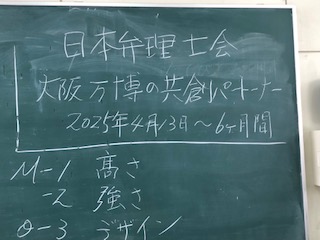 日本弁理士会
大阪万博の共創パートナー
2025年4月13日～6ヶ月間
M-1 高さ
-2 強さ
0-3 デザイン